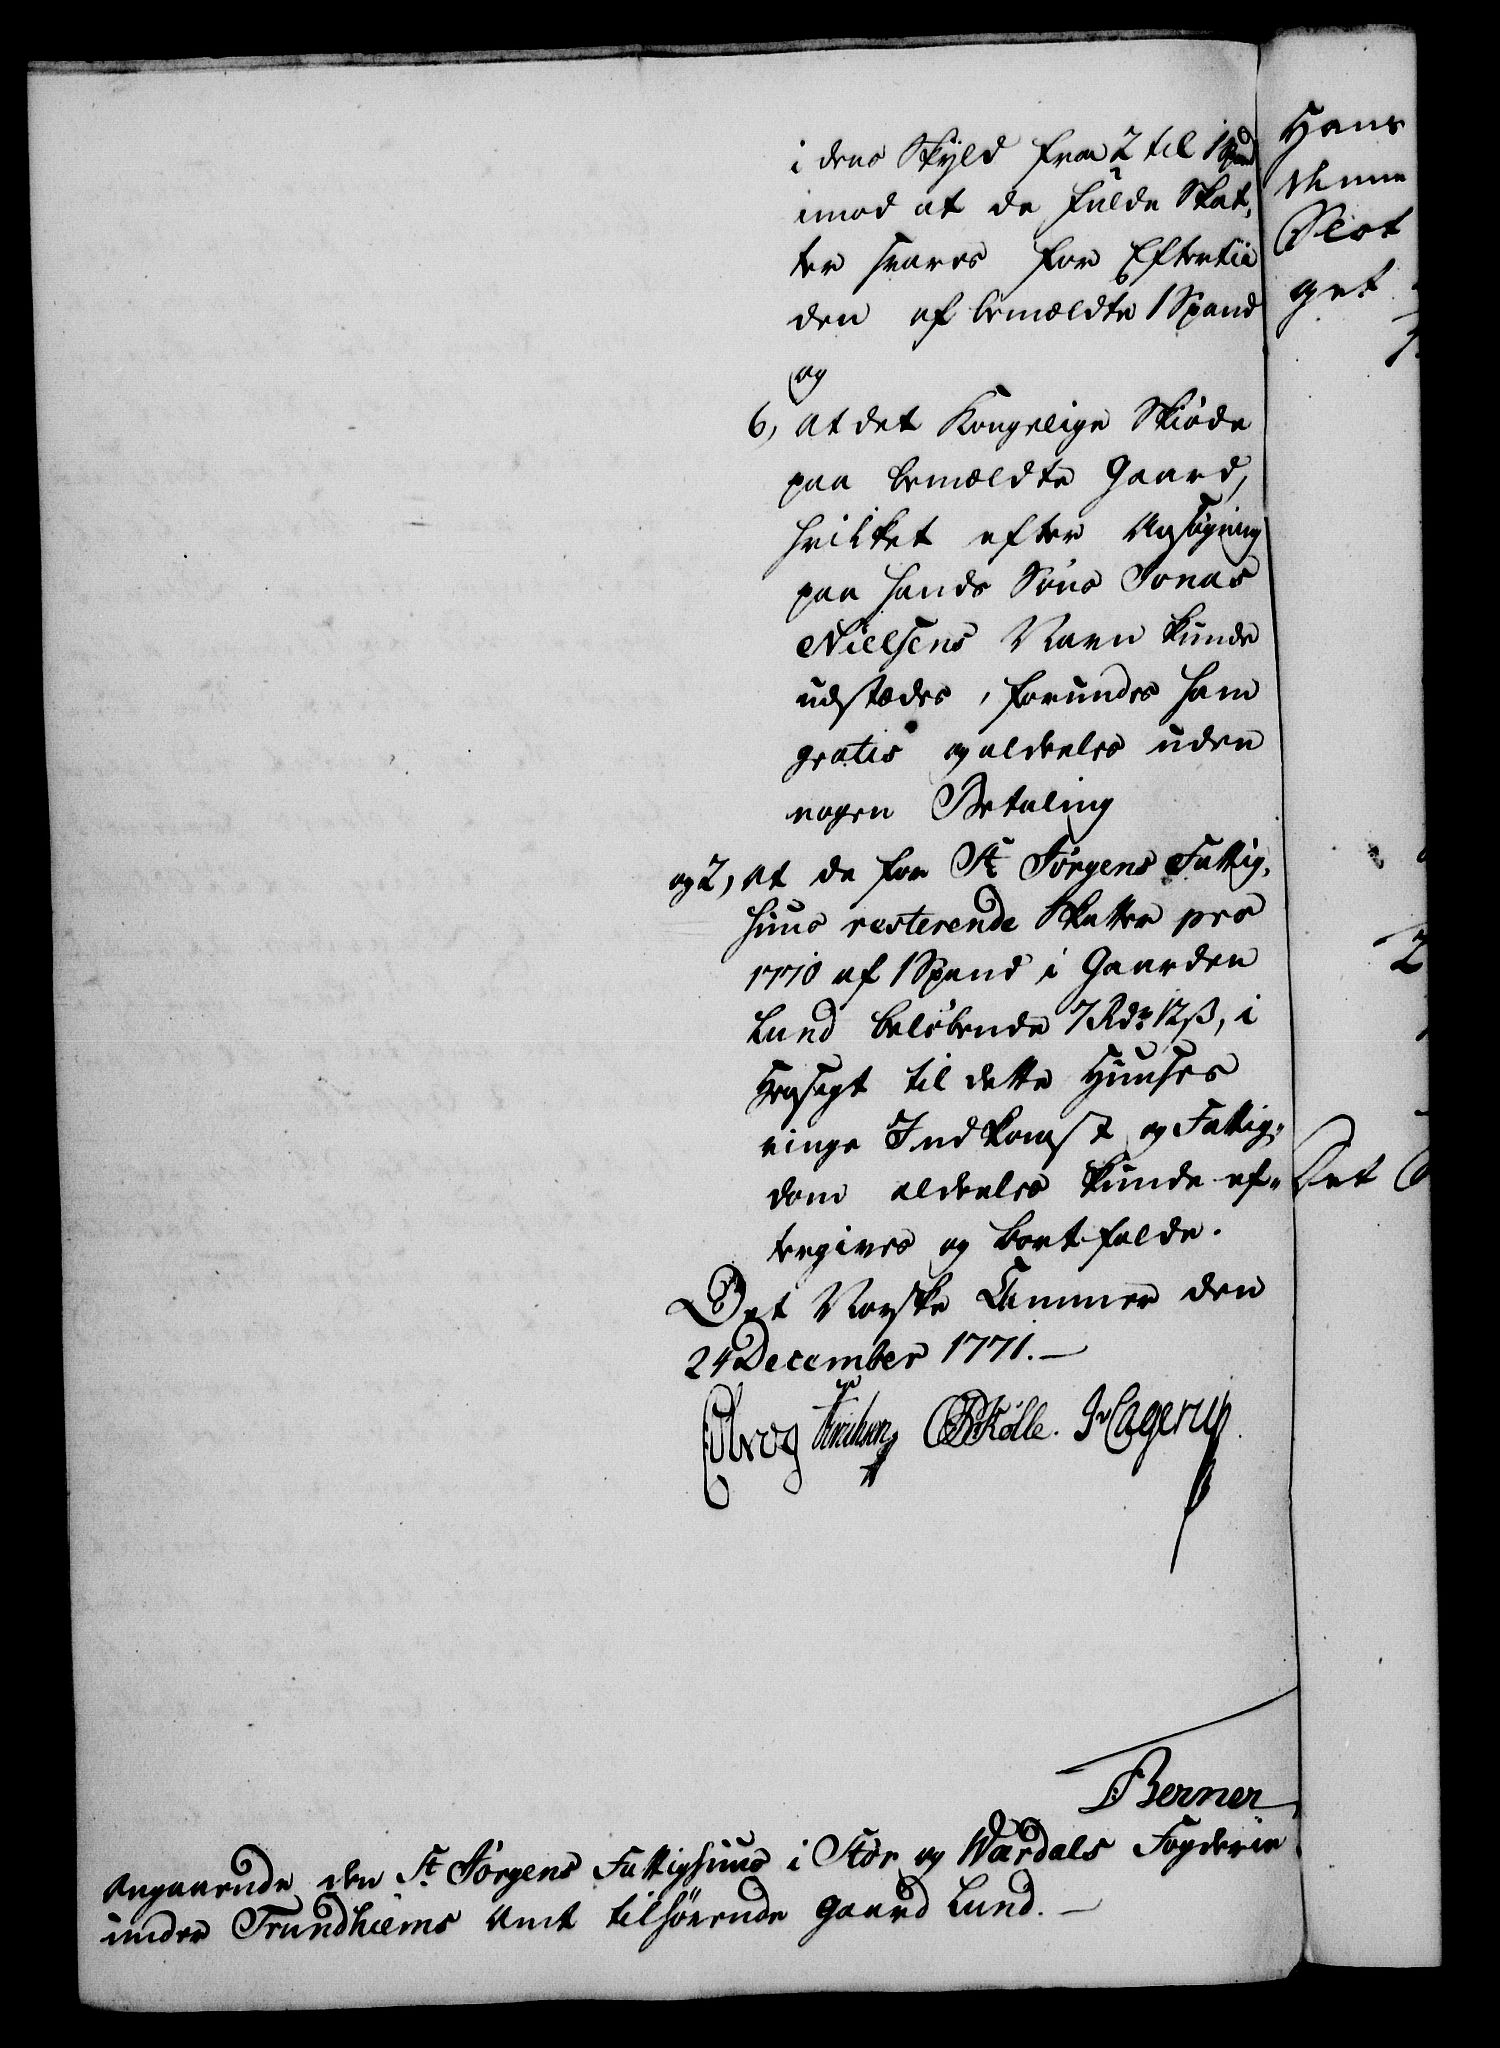 i dens Skyld fra 2 til 1 Spand
imod at de fulde Skat,
ter svares for Eftertii
den af bemældte 1 Spand
og
6, at det Kongelige Skiøde
paa bemældte Gaard,
hvilket efter Ansøgning
paa hands Søns Jonas
Nielsens Navn kunde
udstædes, forundes ham
gratis og aldeeles uden
nogen Betaling
og 2, at de for St Jørgens Fattig,
huus resterende Skatter pro
1770 af 1 Spand i Gaarden
Lund beløbende 7 Rdr 12 ß, i
Hensigt til dette Huuses
ringe Indkomst og Fattig,
dom aldeeles kunde ef,,
tergives og bortfalde.
Det Norske Cammer den
24 December 1771.—
Kølle. Hagerup
Berner
Angaaende den St Jørgens Fattighuus i Stør og Wærdals Fogderie
under Trundhiems Amt tilhørende Gaard Lund.—
Hans
Slot
get
2
Det